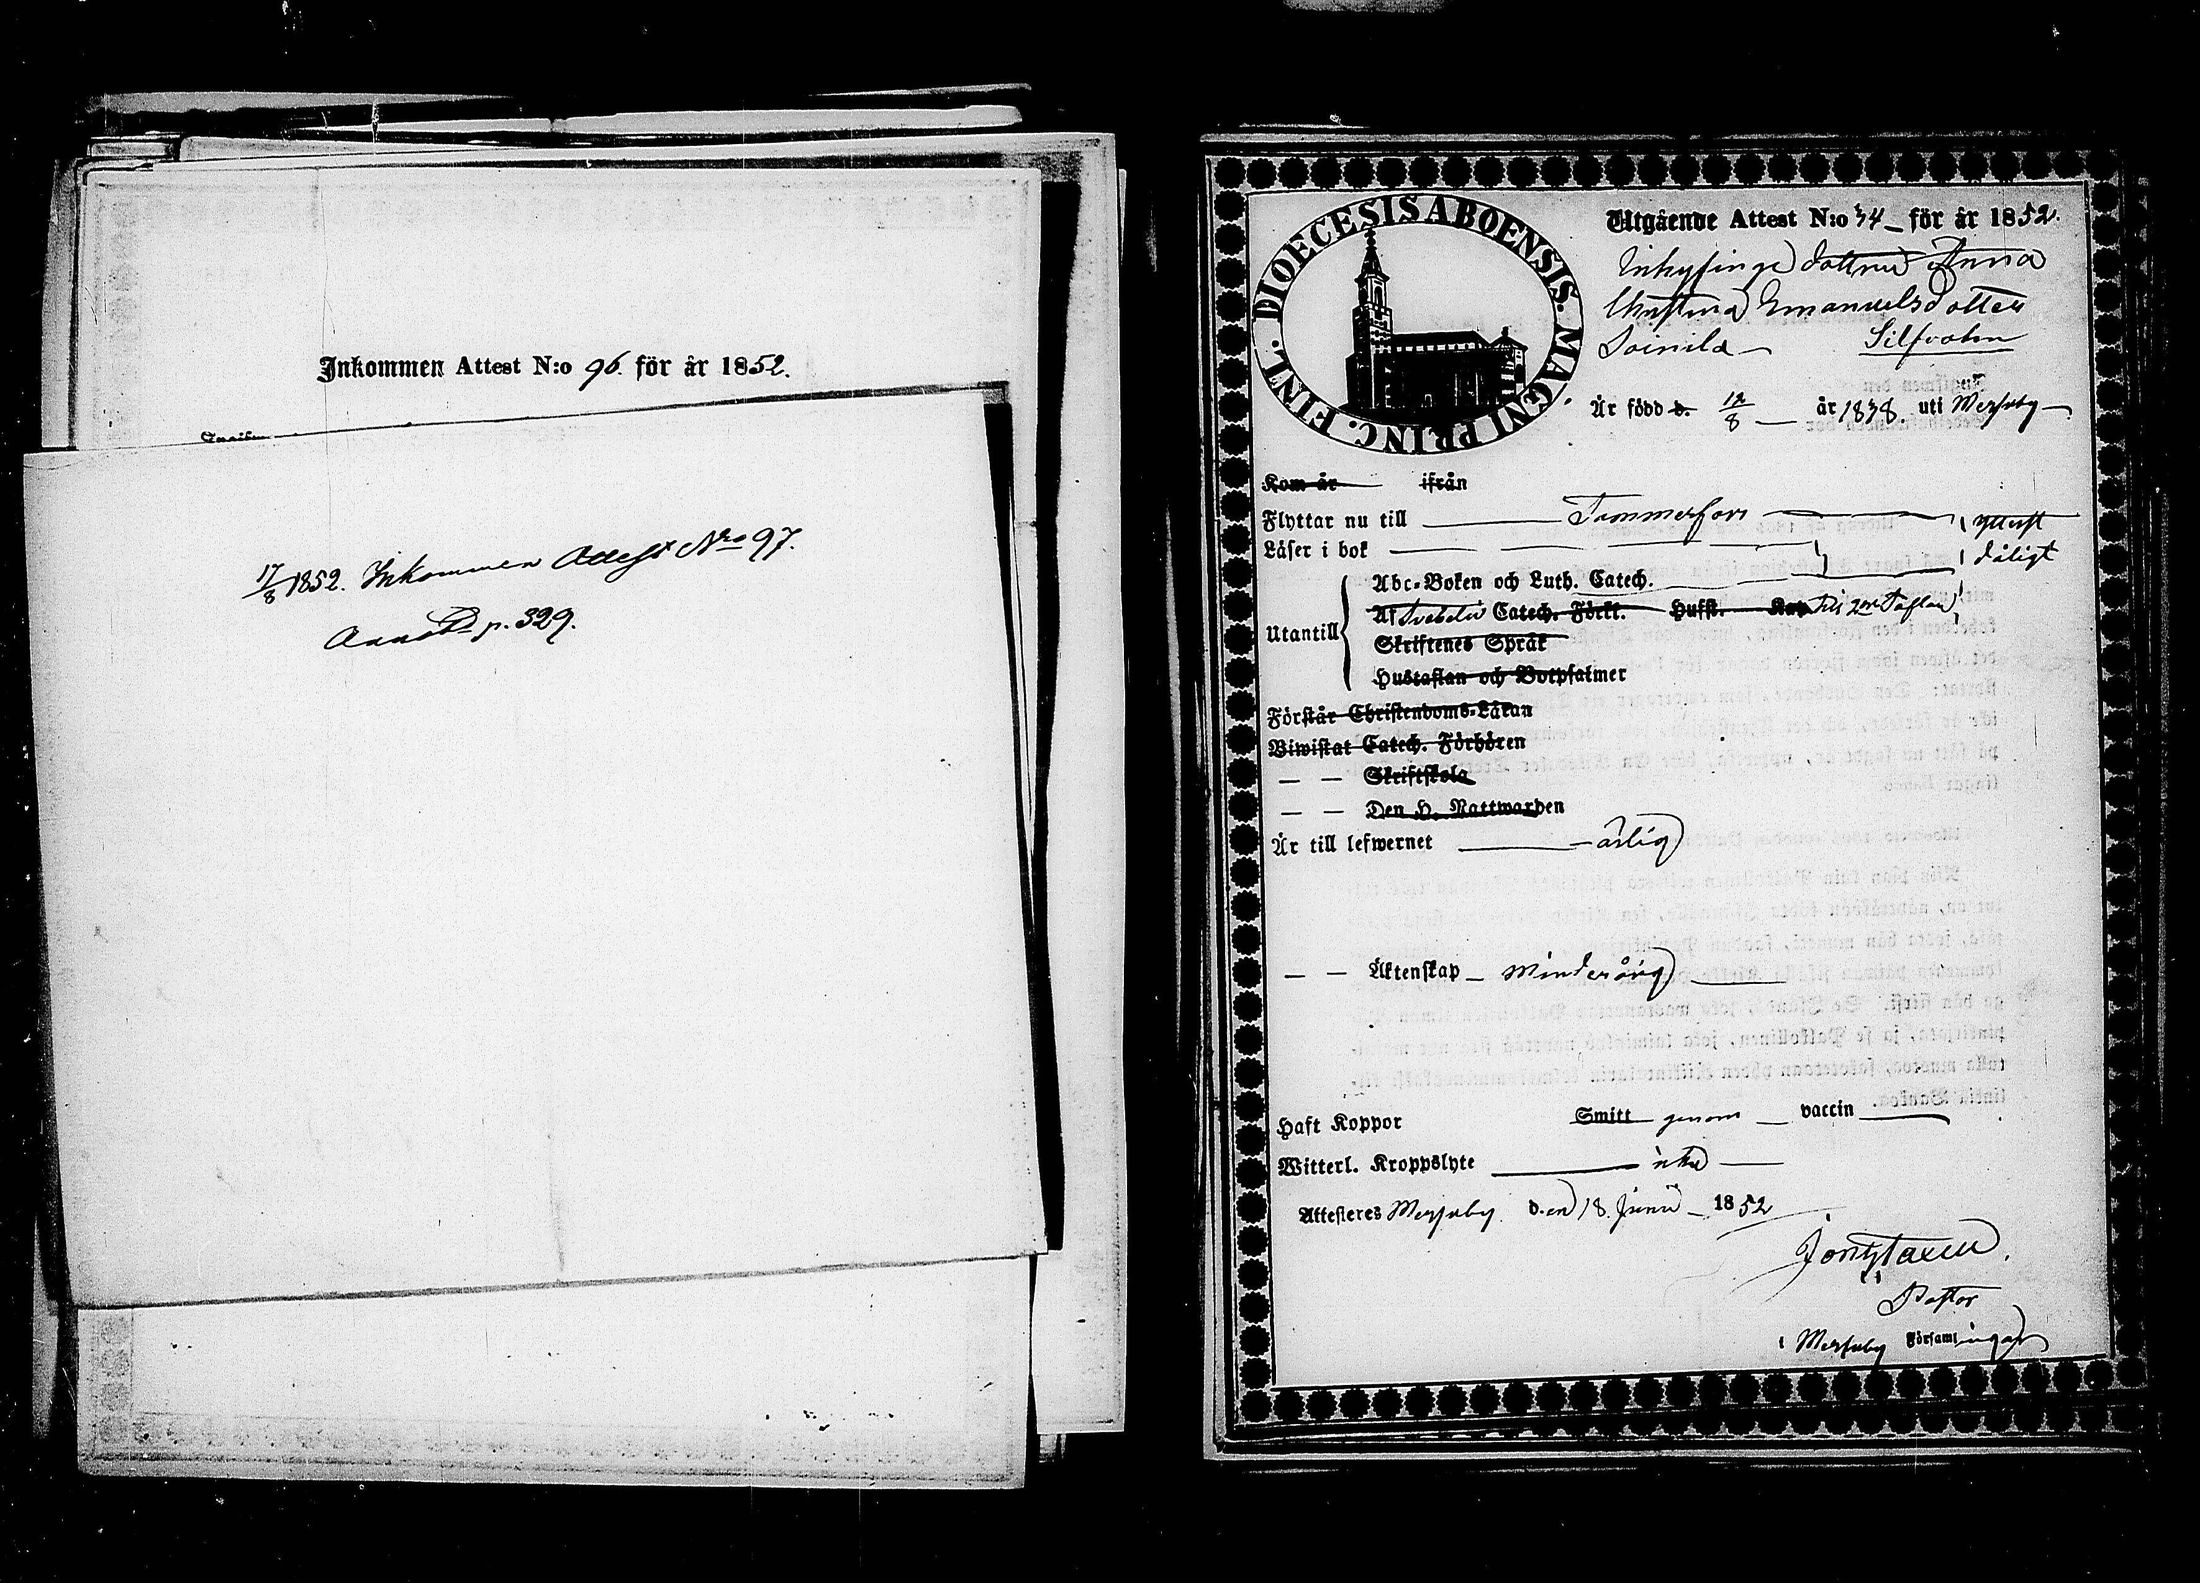 Inkommen Attest N:o 96. för år 1852.
17/8 1852. Inkommen Attest Nro 97.
p. 329.
DIOECESIS ABOENSIS. MAGNI PRINC. FINL.
Utgående Attest N:o 34 för år 1852.
Inhysinge dottren Anna
Christina Emanuelsdotter
Soinila Silfvola
Är född d. 12/8 år 1838. uti Messuby
Kom år ifrån
Flyttar nu till Tammerfors
Läser i bok
ytterst
dåligt
Utantill
Abc-Boken och Luth. Catech.
Af Svebelii Catech. Förkl. Husst. Kap till 2ne Taflan
Skriftenes Språk
Hustaflan och Botpsalmer
Förstår Christendoms-Läran
Biwistat Catech. Förhören
— — Skriftskola
— — Den H. Nattwarden
Är till lefwernet ärlig
— — Äktenskap minderårig
Haft Koppor Smitt genom vaccin
Witterl. Kroppslyte icke
Attesteres Messuby den 18 Junii 1852
Pastor
i Messuby Församlingar